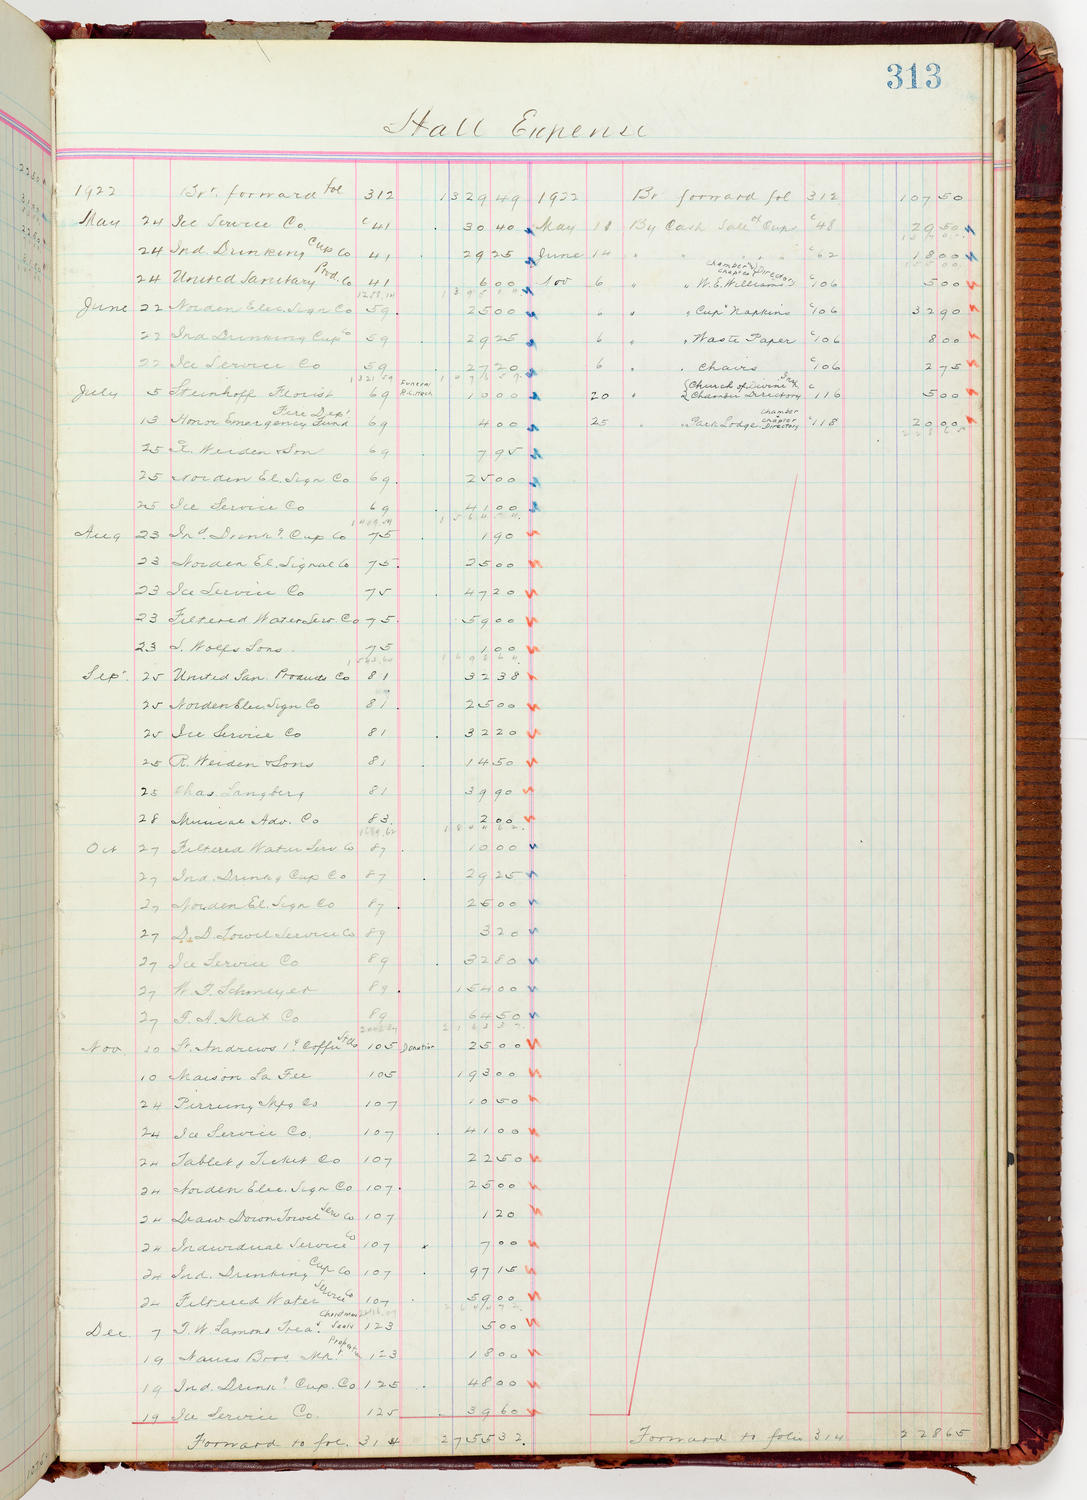 313
Hall Expense
1922 Brt. forward fol 312 1329 49
May 24 Ice Service Co. c 41 30 40
24 Ind. Drinking Cup Co 41 29 25
24 United Sanitary Prod. Co 41 6 00
June 22 Norden Elec. Sign Co 59 25 00
22 Ind Drinking Cup Co 59 29 25
22 Ice Service Co 59 27 20
July 5 Steinhoff Florist 69 Funeral 10 00
13 Honor Emergency Fund Fire Dept 69 4 00
25 R. Weiden & Son 69 7 95
25 Norden El. Sign Co 69 25 00
25 Ice Service Co 69 41 00
Aug 23 Ind. Drinkg Cup Co 75 1 90
23 Norden El. Signal Co 75 25 00
23 Ice Service Co 75 47 20
23 Filtered Water Serv. Co 75 59 00
23 S. Wolfs Sons 75 1 00
Sept. 25 United San. Products Co 81 32 38
25 Norden Elec. Sign Co 81 25 00
25 Ice Service Co 81 32 20
25 R. Weiden & Sons 81 14 50
25 Chas. Langberg 81 39 90
28 Musical Adv. Co 83 2 00
Oct 27 Filtered Water Serv Co 87 10 00
27 Ind. Drinkg Cup Co 87 29 25
27 Norden El. Sign Co 87 25 00
27 D. D. Towel Service Co 89 3 20
27 Ice Service Co 89 32 80
27 W. F. Schmeyer 89 154 00
27 F. A. Max Co 89 64 50
Nov. 10 St. Andrews 105 Donation 25 00
10 Maison La Fee 105 193 00
24 Pirrung Mfg Co 107 10 50
24 Ice Service Co. 107 41 00
24 Tablet & Ticket Co 107 22 50
24 Norden Elec. Sign Co 107 25 00
24 Draw Down Towel Serv Co 107 1 20
24 Individual Service Co 107 7 00
24 Ind. Drinking Cup Co 107 97 15
24 Filtered Water Service Co 107 59 00
Dec. 7 T. W. Lamont Treas. Christmas Seals 123 5 00
19 Naues Bros. 123 18 00
19 Ind. Drinkg Cup. Co 125 48 00
19 Ice Service Co. 125 39 60
Forward to fol. 314 2755 32
1922 Br forward fol 312 107 50
May 18 By Cash Sale of Cups c 48 29 50
June 14 " " " " c 62 18 00
Nov 6 " " W. E. Williams c 106 5 00
6 " " Cup & Napkins c 106 32 90
6 " " Waste Paper c 106 8 00
6 " " Chairs c 106 2 75
20 " Church of Divine Chamber Directory c 116 5 00
25 " " Park Lodge chamber chapter Directory c 118 20 00
Forward to folio 314 228 65